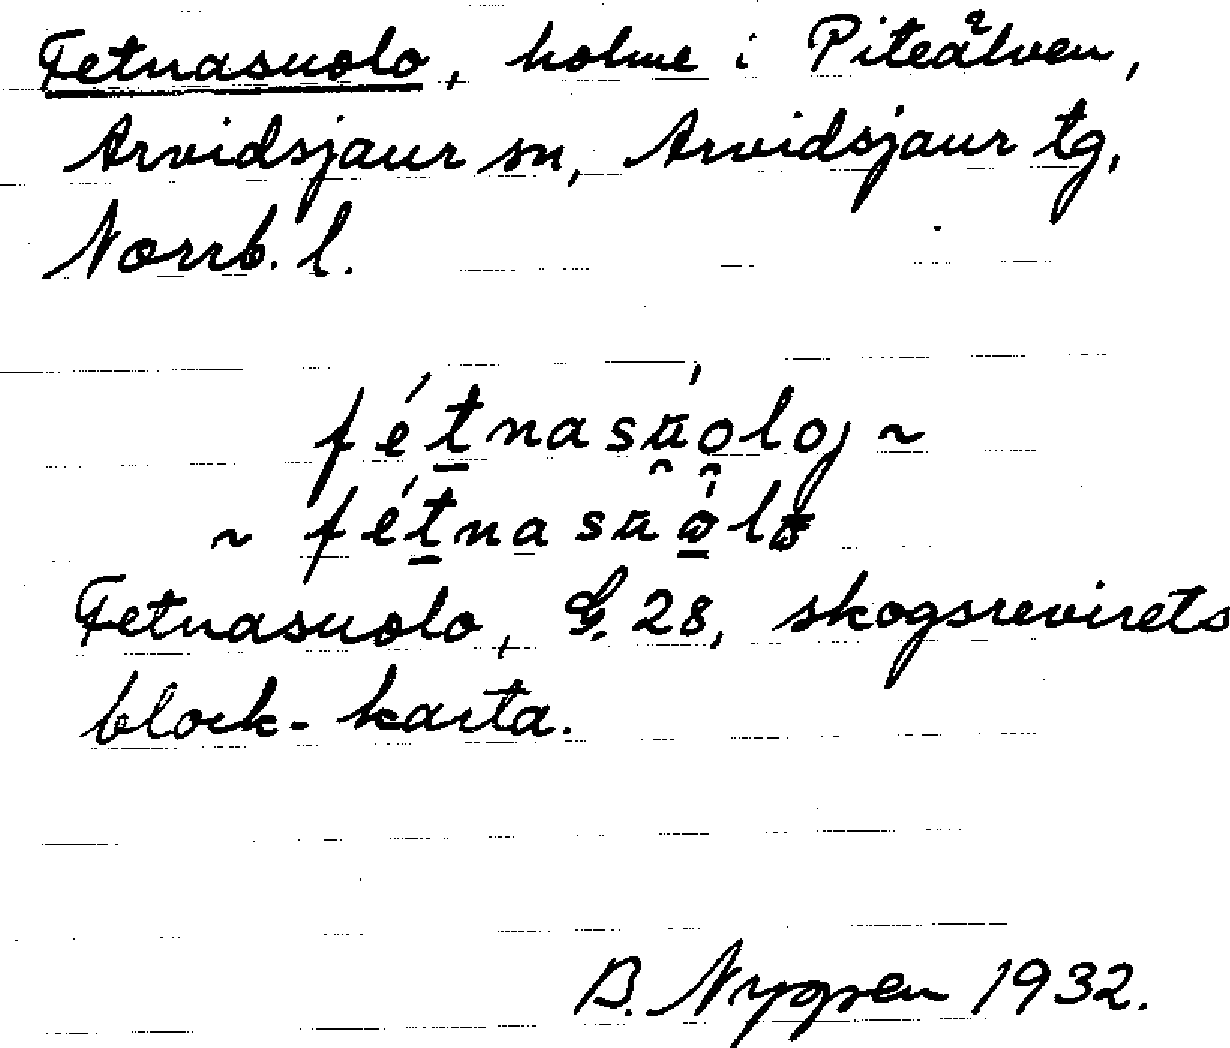 Fetnasuolo, holme i Piteälven,
Arvidsjaur sn, Arvidsjaur tg,
Norrb. l.
fétnasu̯o̯lo ~
~ fétnasuòlo
Fetnasuolo, G. 28, skogsrevirets
block-karta.
B. Nygren 1932.